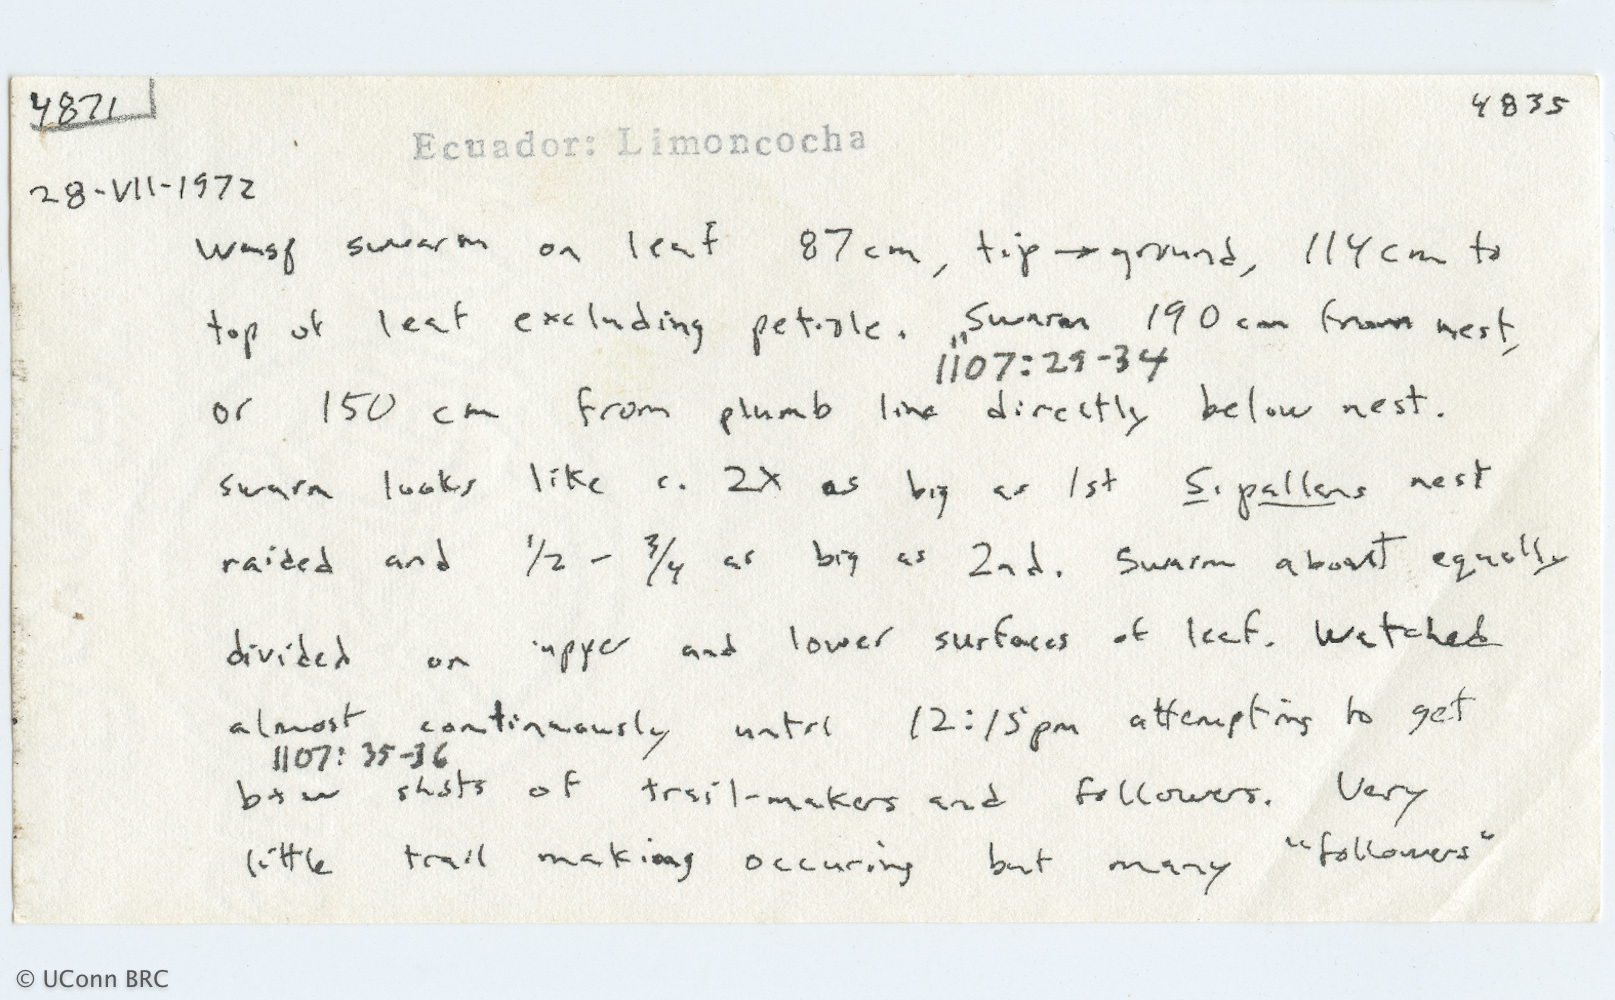 4871
4835
Ecuador: Limoncocha
28-VII-1972
wasp swarm on leaf 87cm, tip→ground, 114cm to
top of leaf excluding petiole. Swarm 190 cm from nest,
1107:29-34
or 150 cm from plumb line directly below nest.
swarm looks like c. 2x as big as 1st S. pallens nest
raided and 1/2 - 3/4 as big as 2nd. Swarm about equally
divided on upper and lower surfaces of leaf. Watched
almost continuously until 12:15pm attempting to get
1107: 35-36
b+w shots of trail-makers and followers. Very
little trail making occuring but many "followers"
© UConn BRC